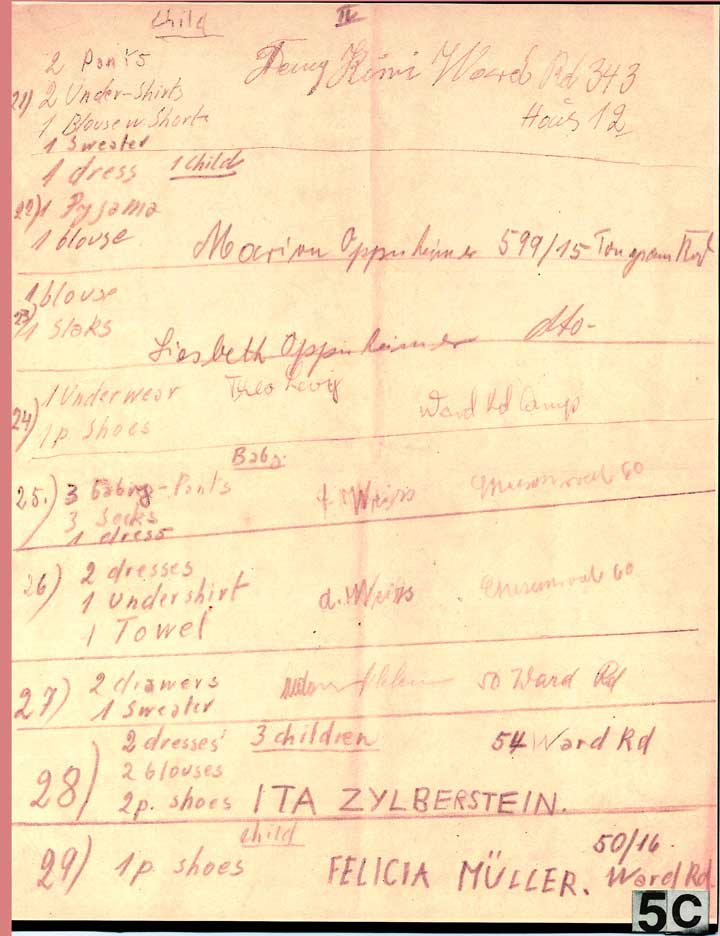 Child II
2 Pants
21) 2 Under-Shirts Ward Rd 343
1 Blouse w. Short Haus 12
1 Sweater
1 dress 1 child
22) 1 Pyjama
1 blouse Marion Oppenheimer 599/15 Tongsham Rd
1 blouse
23) 1 Slaks Liesbeth Oppenheimer dto-
24) 1 Underwear Theo Levy Ward Rd Camp
1 p. Shoes
Baby
25.) 3 baby-Pants Weiss 60
3 Socks
1 dress
26) 2 dresses
1 undershirt d. Weiss 60
1 Towel
27) 2 drawers 50 Ward Rd
1 Sweater
2 dresses 3 children 54 Ward Rd
28) 2 blouses
2p. shoes ITA ZYLBERSTEIN.
child
29) 1 p. shoes FELICIA MÜLLER. 50/16 Ward Rd.
5C